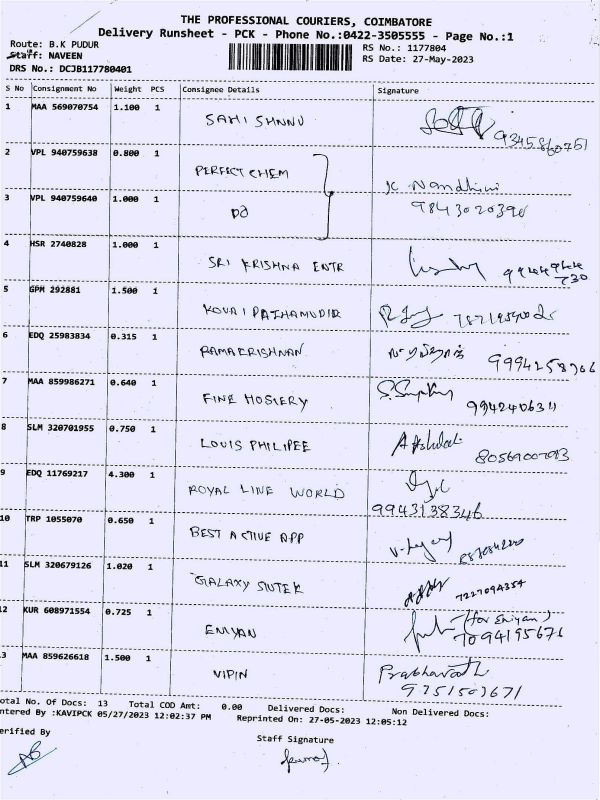 THE PROFESSIONAL COURIERS, COIMBATORE
Delivery Runsheet - PCK - Phone No.:0422-3505555 - Page No.:1
Route: B.K PUDUR RS No.: 1177804
Staff: NAVEEN RS Date: 27-May-2023
DRS No.: DCJB117780401
S No Consignment No Weight PCS Consignee Details Signature
1 MAA 569070754 1.100 1 SAMISHNNU
9345860751
2 VPL 940759638 0.800 1 PERFECT CHEM
K Nandhini
3 VPL 940759640 1.000 1 DO 9843020390
4 HSR 2740828 1.000 1 SRI KRISHNA ENTR
5 GPM 292881 1.500 1
6 EDQ 25983834 0.315 1 RAMAKRISHNAN
7 MAA 859986271 0.640 1 FINE HOSIERY
8 SLM 320701955 0.750 1 LOUIS PHILIPEE
8056900793
9 EDQ 11769217 4.300 1 ROYAL LINE WORLD
9943138346
10 TRP 1055070 0.650 1 BEST ACTIVE APP
11 SLM 320679126 1.020 1 GALAXY
7227094354
12 KUR 608971554 0.725 1 ENIYAN (for Eniyan)
7094195671
3 MAA 859626618 1.500 1 VIPIN
otal No. Of Docs: 13 Total COD Amt: 0.00 Delivered Docs: Non Delivered Docs:
ntered By :KAVIPCK 05/27/2023 12:02:37 PM Reprinted On: 27-05-2023 12:05:12
erified By Staff Signature